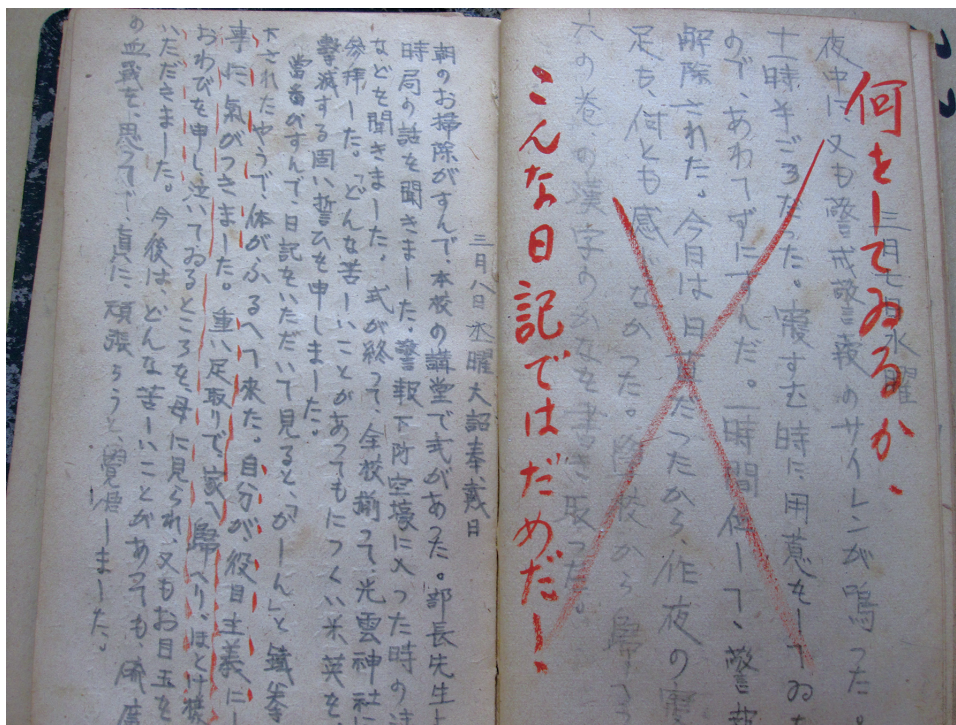 三月七日水曜
夜中に又も警戒警報のサイレンが鳴った。
十一時半ごろだった。寝すむ時に、用意をしてゐた
ので、あわてずにすんだ。一時間位して、警報
解除された。今日は日直だったから、昨夜の寝
足も、何とも感じなかった。学校から帰って
六の巻、の漢字のかなを書き取った。
何をしてゐるか、
こんな日記ではだめだ!
三月八日木曜大詔奉戴日
朝のお掃除がすんで、本校の講堂で式があった。部長先生よ
時局の話を聞きました。警報下防空壕に入った時の注
などを聞きました。式が終って、全校揃って、光雲神社に
参拝した。「どんな苦しいことがあってもにつくい米英を、
撃滅する固い誓ひを申しました。
当番がすんで、日記をいただいて見ると、「がーん」と鐵拳
下されたやうで、体が、ふるへて来た。自分が、役目主義に
事に氣がつきました。重い足取りで、家へ歸へり、ほとけ様
おわびを申し、泣いてゐるところを、母に見られ、又もお目玉を
いただきました。今後は、どんな苦しいことがあっても、硫黄
の血戦を、思って、真に、頑張らうと、覺悟しました。